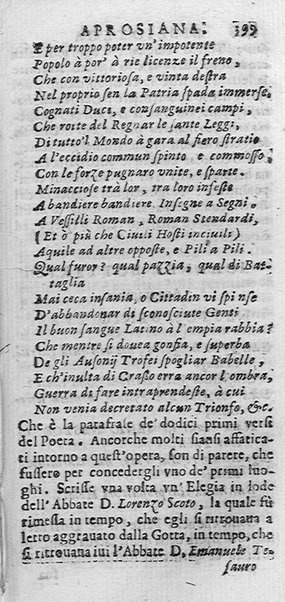 APROSIANA. 399
E per troppo poter vn' impotente
Popolo à por' à rie licenze il freno,
Che con vittoriosa, e vinta destra
Nel proprio sen la Patria spada immerse.
Cognati Duci, e consanguinei campi,
Che rotte del Regnar le sante Leggi,
Di tutto'l Mondo à gara al fiero stratio
A l'eccidio commun spinto e commosso,
Con le forze pugnaro vnite, e sparte.
Minacciose trà lor, tra loro infeste
A bandiere bandiere. Insegne a Segni,
A Vessilli Roman, Roman Stendardi,
( Et ò più che Ciuili Hosti inciuili )
Aquile ad altre opposte, e Pili a Pili.
Qual furor? qual pazzia, qual di Bat-
taglia
Mai ceca insania, o Cittadin vi spinse
D'abbandonar di sconosciute Genti
Il buon sangue Latino à l'empia rabbia?
Che mentre si douea gonfia, e superba
De gli Ausonij Trofei spogliar Babelle,
E ch'inulta di Crasso erra ancor l'ombra,
Guerra di fare intraprendeste, à cui
Non venia decretato alcun Trionfo, &c.
Che è la parafrase de' dodici primi versi
del Poeta. Ancorche molti siansi affatica-
ti intorno a quest'opera, son di parere, che
fussero per concedergli vno de' primi luo-
ghi. Scrisse vna volta vn' Elegia in lode
dell'Abbate D. Lorenzo Scoto, la quale fù
rimessa in tempo, che egli si ritrouaua a
letto aggrauato dalla Gotta, in tempo, che
si ritrouaua iui l'Abbate D. Emanuele Te-
sauro